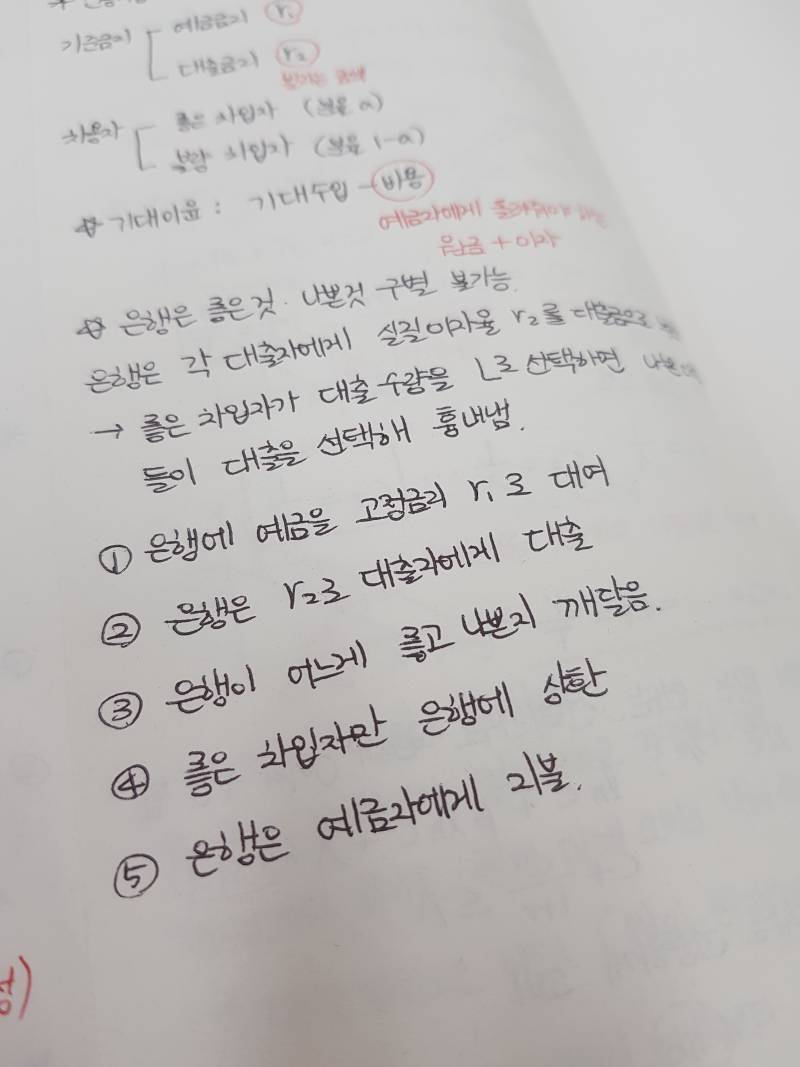 기준금리 예금금리 r₁
대출금리 r₂
차용자 좋은 차입자 (비율 a)
불량 차입자 (비율 1-a)
기대이윤 : 기대수입 - 비용
예금자에게 돌려줘야
원금 + 이자
은행은 좋은것. 나쁜것 구별 불가능.
은행은 각 대출자에게 실질이자율 r₂를 대출금으로
→ 좋은 차입자가 대출수량을 L로 선택하면
들이 대출을 선택해 흉내냄.
① 은행에 예금을 고정금리 r₁로 대여
② 은행은 r₂로 대출자에게 대출
③ 은행이 어느게 좋고 나쁜지 깨달음.
④ 좋은 차입자만 은행에 상환
⑤ 은행은 예금자에게 지불.